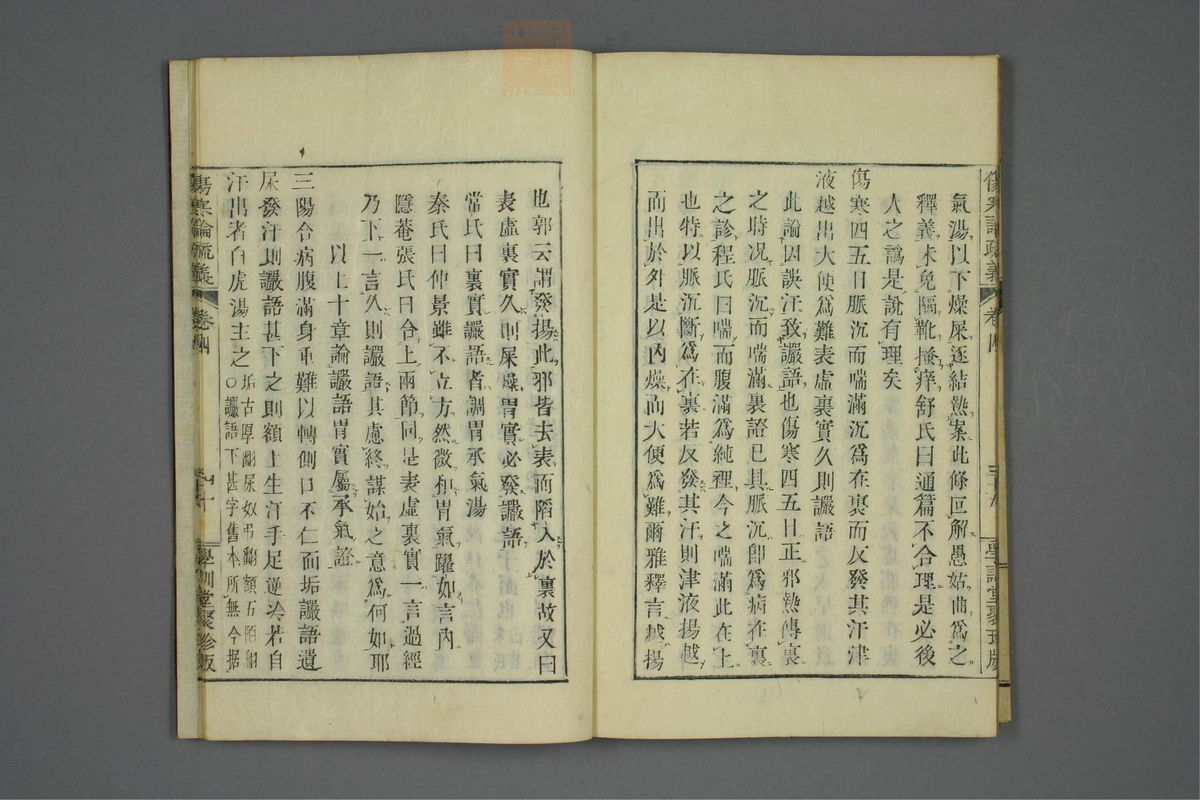 傷寒論疏義 卷四
學訓堂聚珍版
氣湯以下燥屎逐結熱案此條叵解愚姑曲爲之
釋義未免隔靴搔痒舒氏曰通篇不合理是必後
人之譌是說有理矣
傷寒四五日脈沉而喘滿沉爲在裏而反發其汗津
液越出大便爲難表虛裏實久則讝語
此論因誤汗致讝語也傷寒四五日正邪熱傳裏
之時况脈沉而喘滿裏證已具脈沉卽爲病在裏
之診程氏曰喘而腹滿爲純裡今之喘滿此在上
也特以脈沉斷爲在裏若反發其汗則津液揚越
而出於外是以內燥而大便爲難爾雅釋言越揚
也郭云謂發揚此邪皆去表而陷入於裏故又曰
表虛裏實久則屎燥胃實必發讝語
常氏曰裏實讝語者調胃承氣湯
秦氏曰仲景雖不立方然微和胃氣躍如言內
隱菴張氏曰合上兩節同是表虛裏實一言過經
乃下一言久則讝語其慮終謀始之意爲何如耶
以上十章論讝語胃實屬承氣證
三陽合病腹滿身重難以轉側口不仁面垢讝語遺
尿發汗則讝語甚下之則額上生汗手足逆冷若自
汗出者白虎湯主之
垢古厚翻尿奴弔翻額五陌翻
○讝語下甚字舊本所無今据
傷寒論疏義 卷四
四十
學訓堂聚珍版